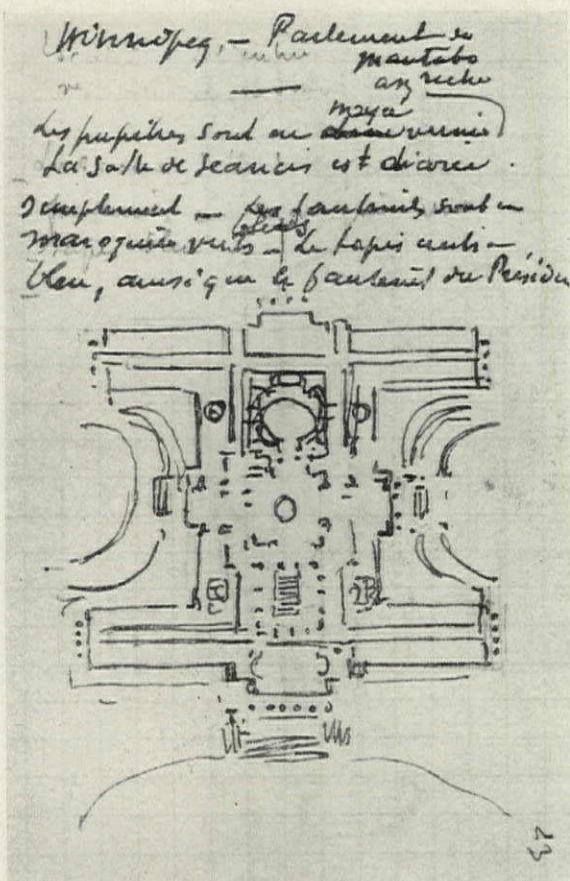 Winnipeg, — Parlement du
Manitoba
assez riche
noyer
Les pupitres sont en verni
La Salle de Séances est décorée
simplement — Les fauteuils sont en
maroquin vert — Le tapis est
bleu, ainsi que le fauteuil du Présiden
23